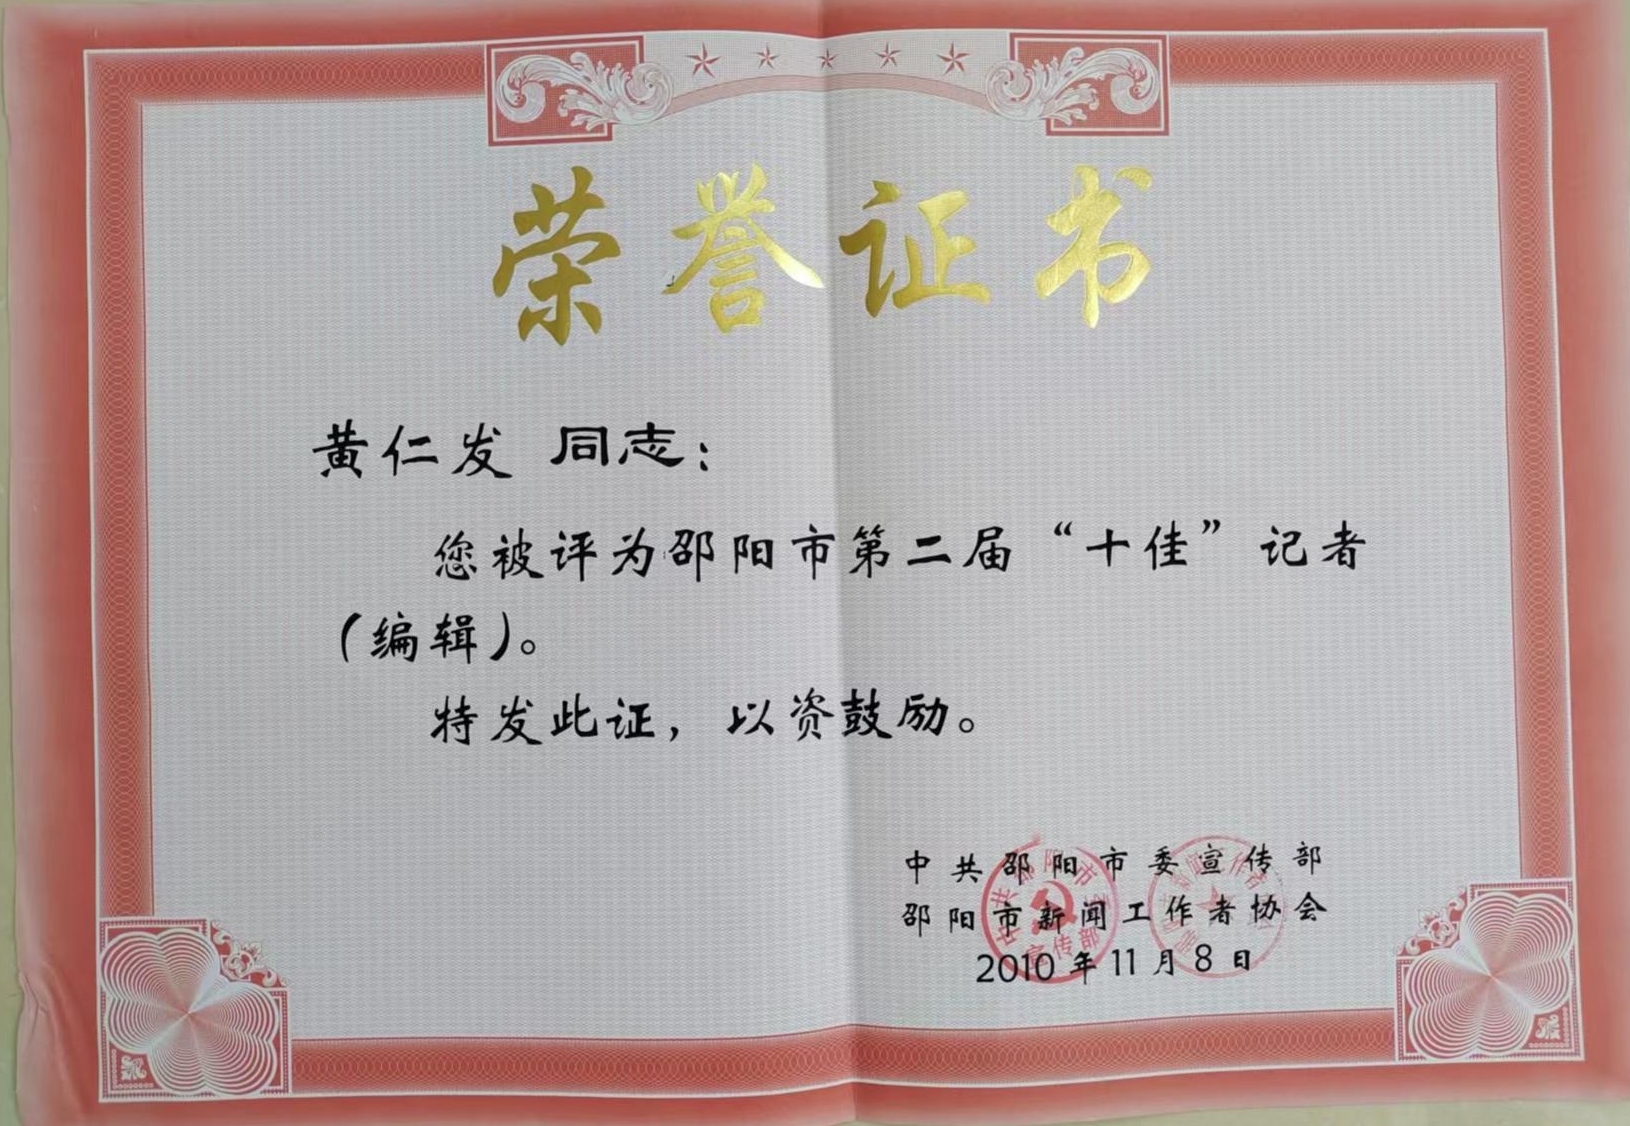 荣誉证书
黄仁发 同志：
您被评为邵阳市第二届“十佳”记者
（编辑）。
特发此证，以资鼓励。
中共邵阳市委宣传部
邵阳市新闻工作者协会
2010年11月8日